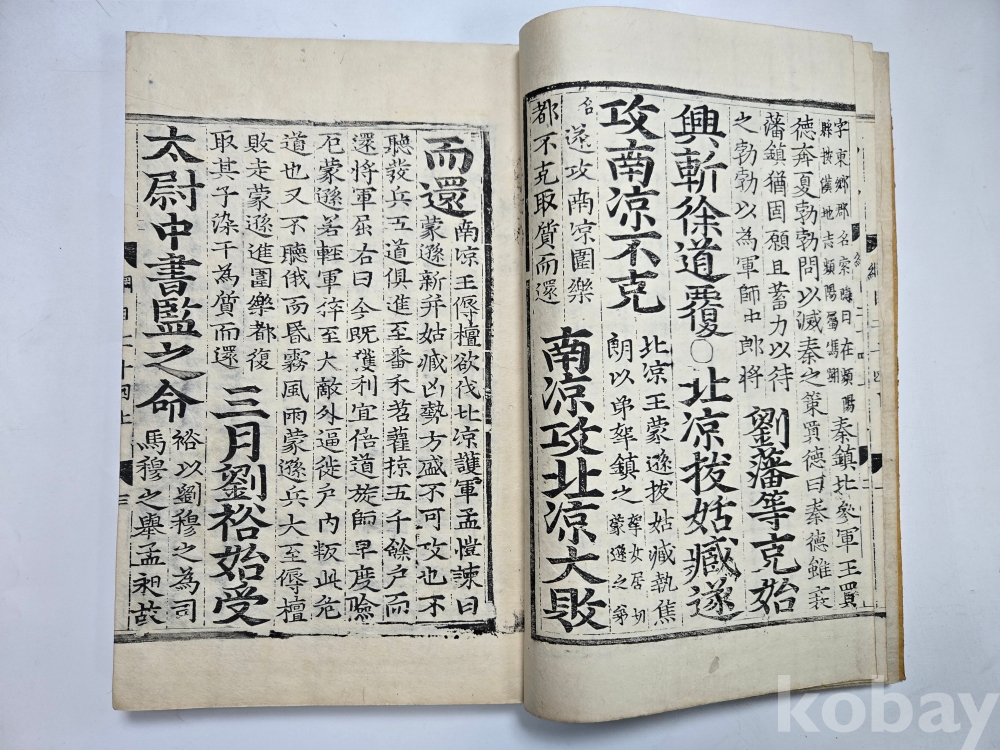 字東鄉郡名索晦曰在頻陽
縣按漢地志頻陽屬馮翊
秦鎮北參軍王買
德奔夏勃勃問以滅秦之策買德曰秦德雖衰
藩鎮猶固願且蓄力以待
之勃勃以為軍師中郎將
劉藩等克始
興斬徐道覆○北凉拔姑臧遂
攻南凉不克
北凉王蒙遜拔姑臧執焦
朗以弟挐鎮之
挐女居切
蒙遜之弟
遂攻南凉圍樂
都不克取質而還
南凉攻北凉大敗
而還
南凉王傉檀欲伐北凉護軍孟愷諫曰
蒙遜新并姑臧凶勢方盛不可攻也不
聽發兵五道俱進至番禾苕藋掠五千餘戶而
還將軍屈右曰今既獲利宜倍道旋師早度險
厄蒙遜若輕軍猝至大敵外逼徙戶內叛此危
道也又不聽俄而昏霧風雨蒙遜兵大至傉檀
敗走蒙遜進圍樂都復
取其子染干為質而還
三月劉裕始受
太尉中書監之命
裕以劉穆之為司
馬穆之舉孟昶故
kobay